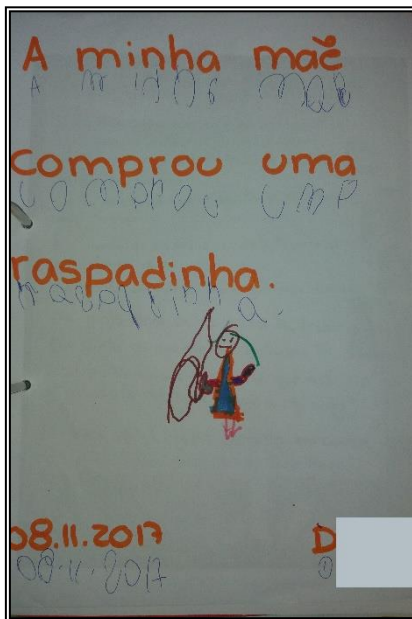 A minha mãe
A minha mae
comprou uma
comprou uma
raspadinha.
raspadinha.
08.11.2017 D
08.11.2017 D